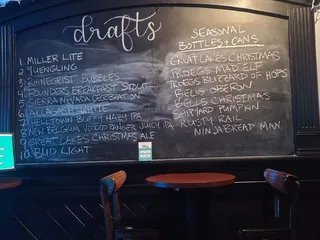 drafts
1. MILLER LITE
2. YUENGLING
3. RHINEGEIST BUBBLES
4. FOUNDERS BREAKFAST STOUT
5. SIERRA NEVADA CELEBRATION
6. DALLAS
7. HELLTOWN BUFFY HAZY IPA
8. NEW BELGIUM VOODOO RANGER JUICY IPA
9. GREAT LAKES CHRISTMAS ALE
10. BUD LIGHT
SEASONAL
BOTTLES + CANS
GREAT LAKES CHRISTMAS
TROEGS MAD ELF
TROEGS BLIZZARD OF HOPS
BELLS OBERON
BELLS CHRISTMAS
SHIPYARD PUMPKIN
RUSTY RAIL
NINJABREAD MAN